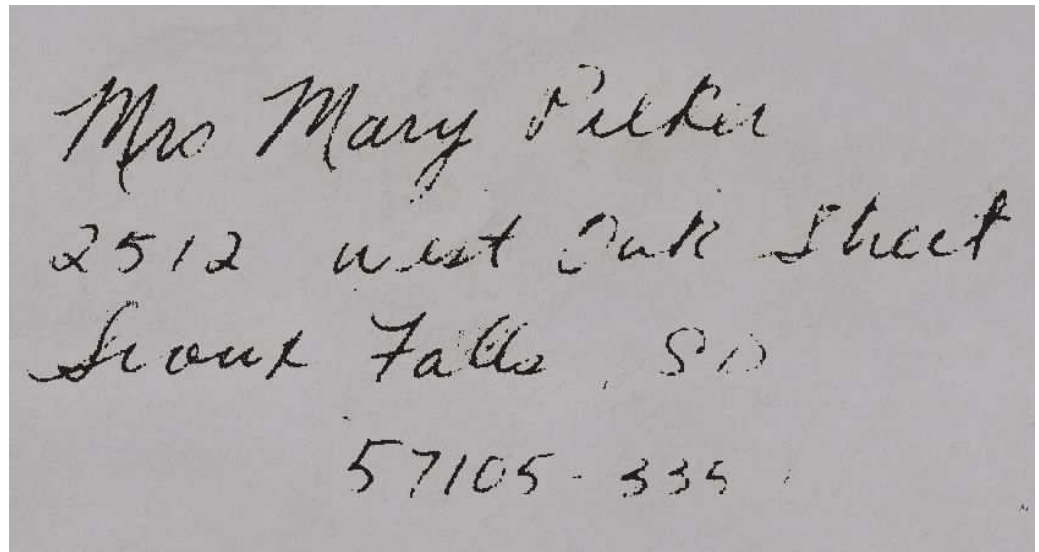 Mrs Mary
2512 West Oak Street
Sioux Falls, SD
57105-335